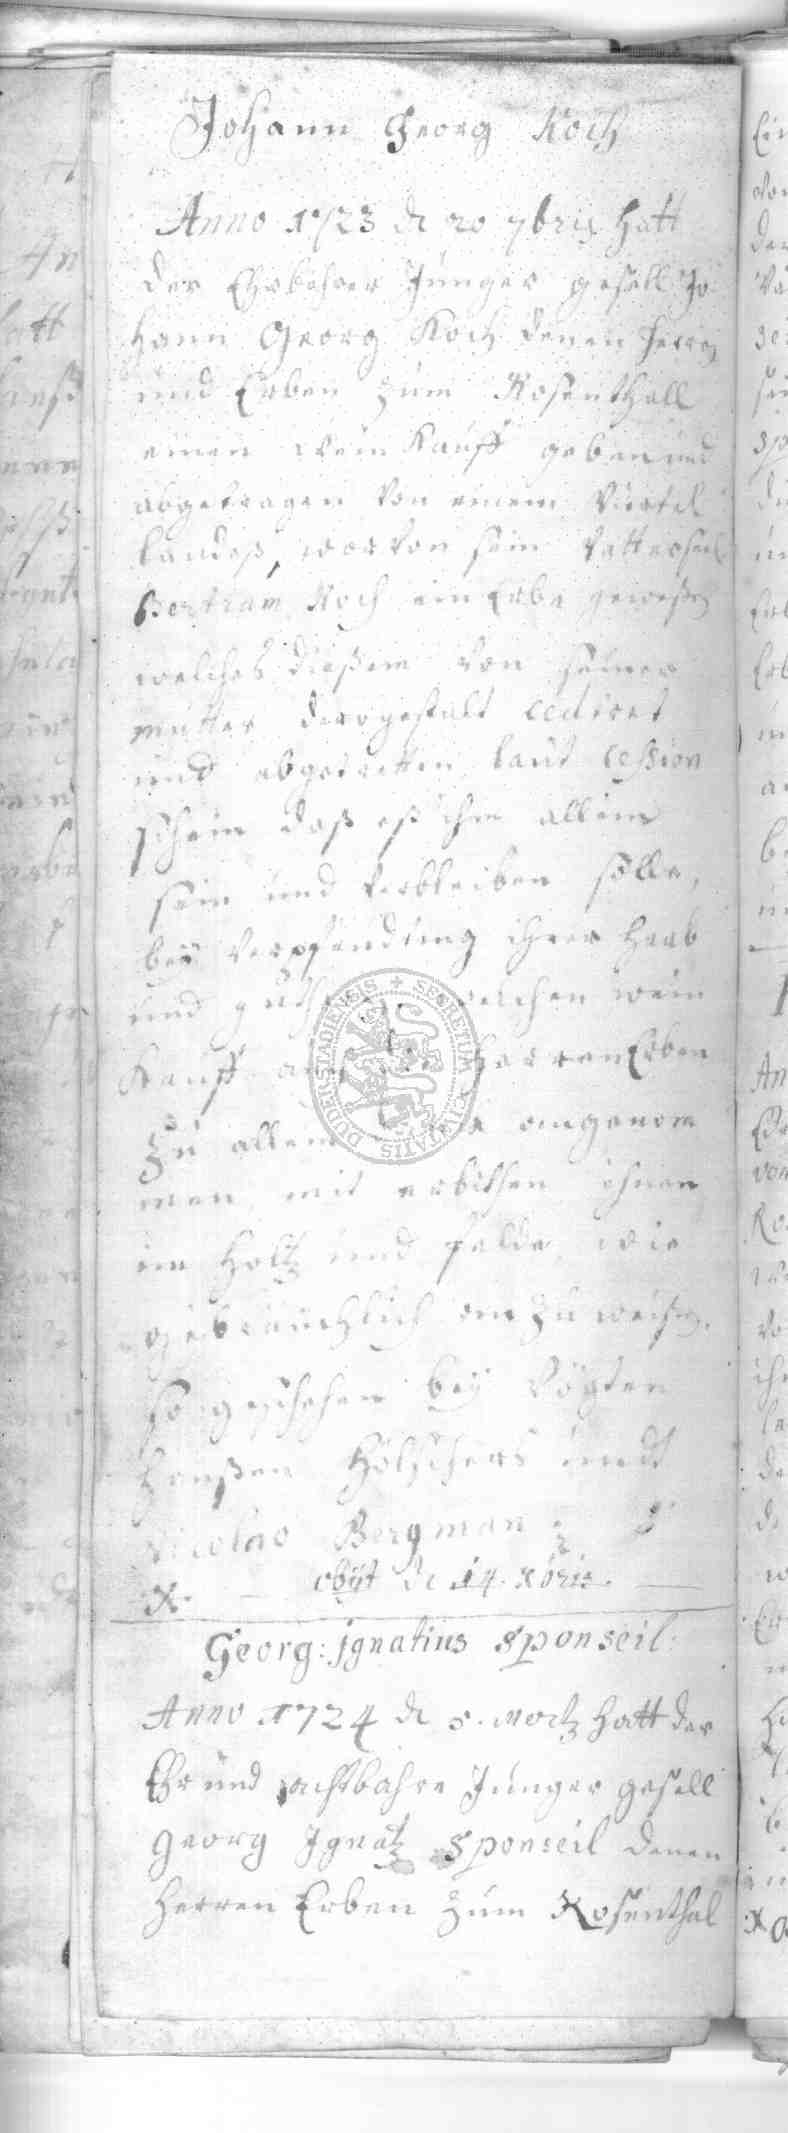 Johann Georg Koch
Anno 1723 d 20 7bris hatt
der Ehrbahrer Junger gesell Jo
hann Georg Koch denen herrn
und Erben zum Rosenthall
einen wein Kauff geben und
abgetragen von einem Viertel
landeß, worvon sein Vatter seel
Bertram Koch ein Erbe geweßen
welches dießem von seiner
mutter dergestalt cediret
und abgetretten laut cession
schein daß eß ihm allein
sein und verbleiben solle,
beÿ verpfendung ihrer haab
und welchen wein
Kauff herren Erben
zu allem angenom
men mit erbithen ihnen
im holtz und felde wie
gebräuchlich an zu weißen.
so geschehen beÿ Vögten
Hanßen Hölschers undt
Nicolao Bergman
obÿt d 14. Xbris.
Georg: Jgnatius Sponseil:
Anno 1724 d 5. Mertz hatt der
Ehr und achtbahre Junger gesell
Georg Jgnatz Sponseil denen
Herren Erben zum Rosenthal
DUDERSTADIENSIS + SECRETUM CIVITATIS